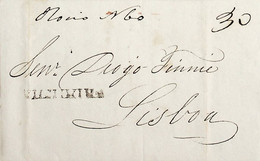 Rocio N 60
30
Sen.r Diogo Finnie
Lisboa